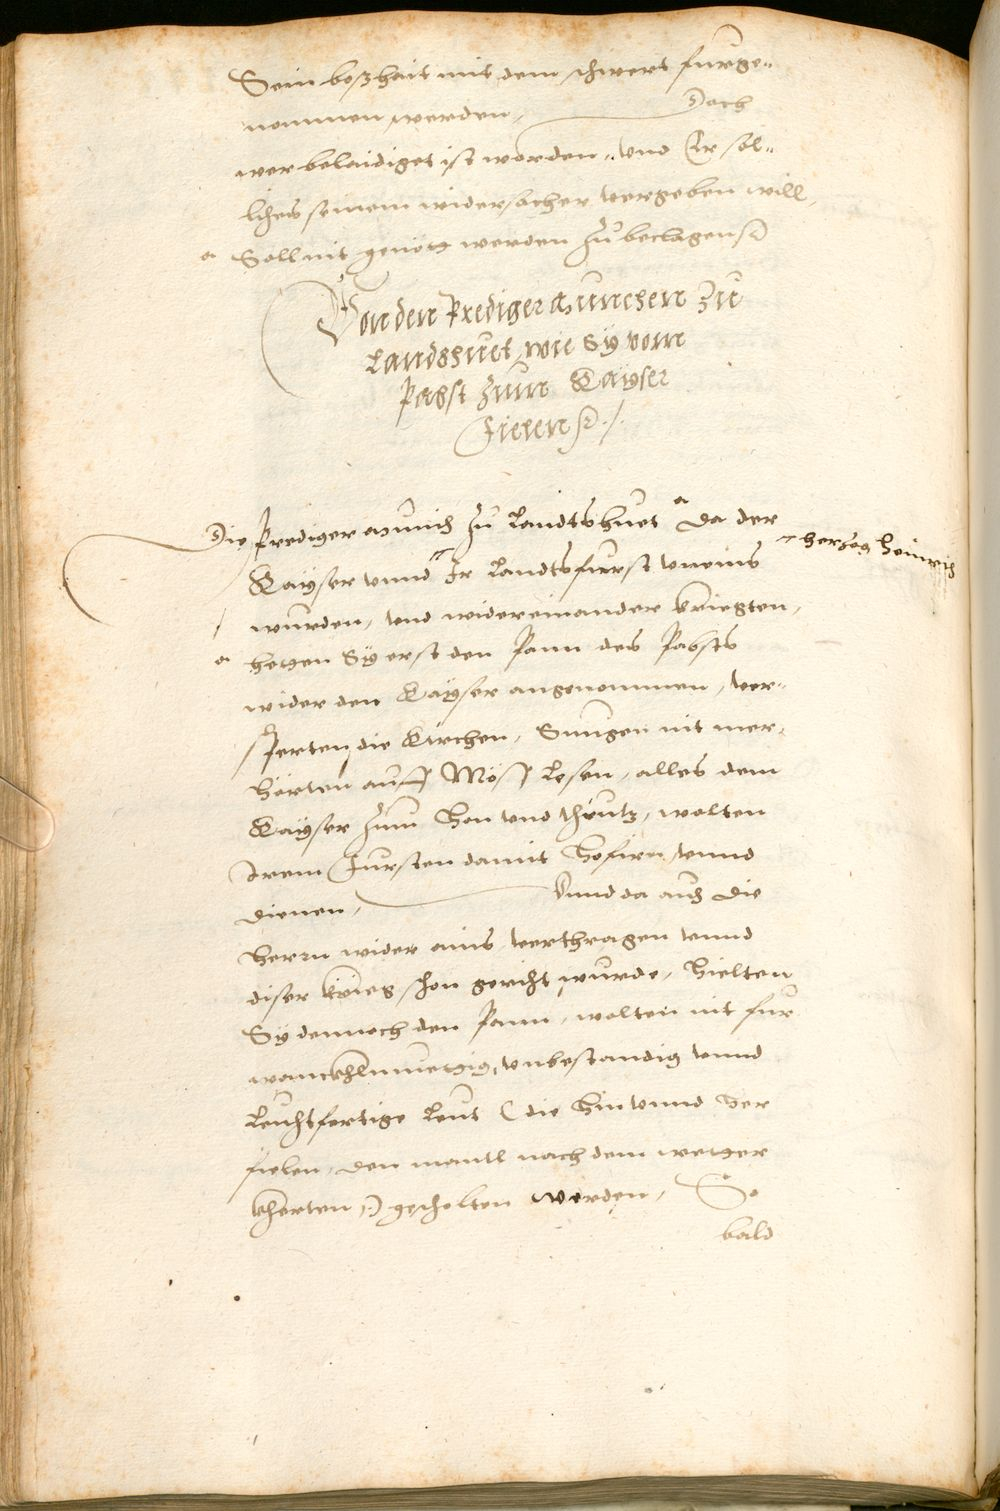 Sein boßhait mit dem schwert furge-
nommen werden, Doch
wer belaidiget ist worden, vnd Er sol-
liches seinem widersacher vergeben will,
Soll nit genött werden zu beclagen etc
Von den Prediger Munchen zu
Landshuet, wie Sy vom
Pabst zum Kayser
Fielen etc ./.
Die Prediger Munich zu Landtshuet da der
Kayser vnnd Ir Landtsfurst vneins
Hertzog Heinrich
wurden, vnd widereinander kriegten,
hetten Sy erst den Pann des Pabsts
wider den Kayser angenommen, ver-
sperten die Kirchen, Sungen nit mer,
Hörten auff Möss Lesen, alles dem
Kayser zum Hon vnd thrutz, wolten
Irem Fursten damit Hofirn vnnd
dienen, Vnnd da auch die
Herrn wider ains verthragen vnnd
diser krieg schon gericht wurde, Hielten
Sy dennoch den Pann, wolten nit fur
wanckhlmuettig, vnbestandig vnnd
Leuchtfertige Leut (die hin vnnd her
fielen, den mantl nach dem wetter
kherten,) gescholten werden, So
bald